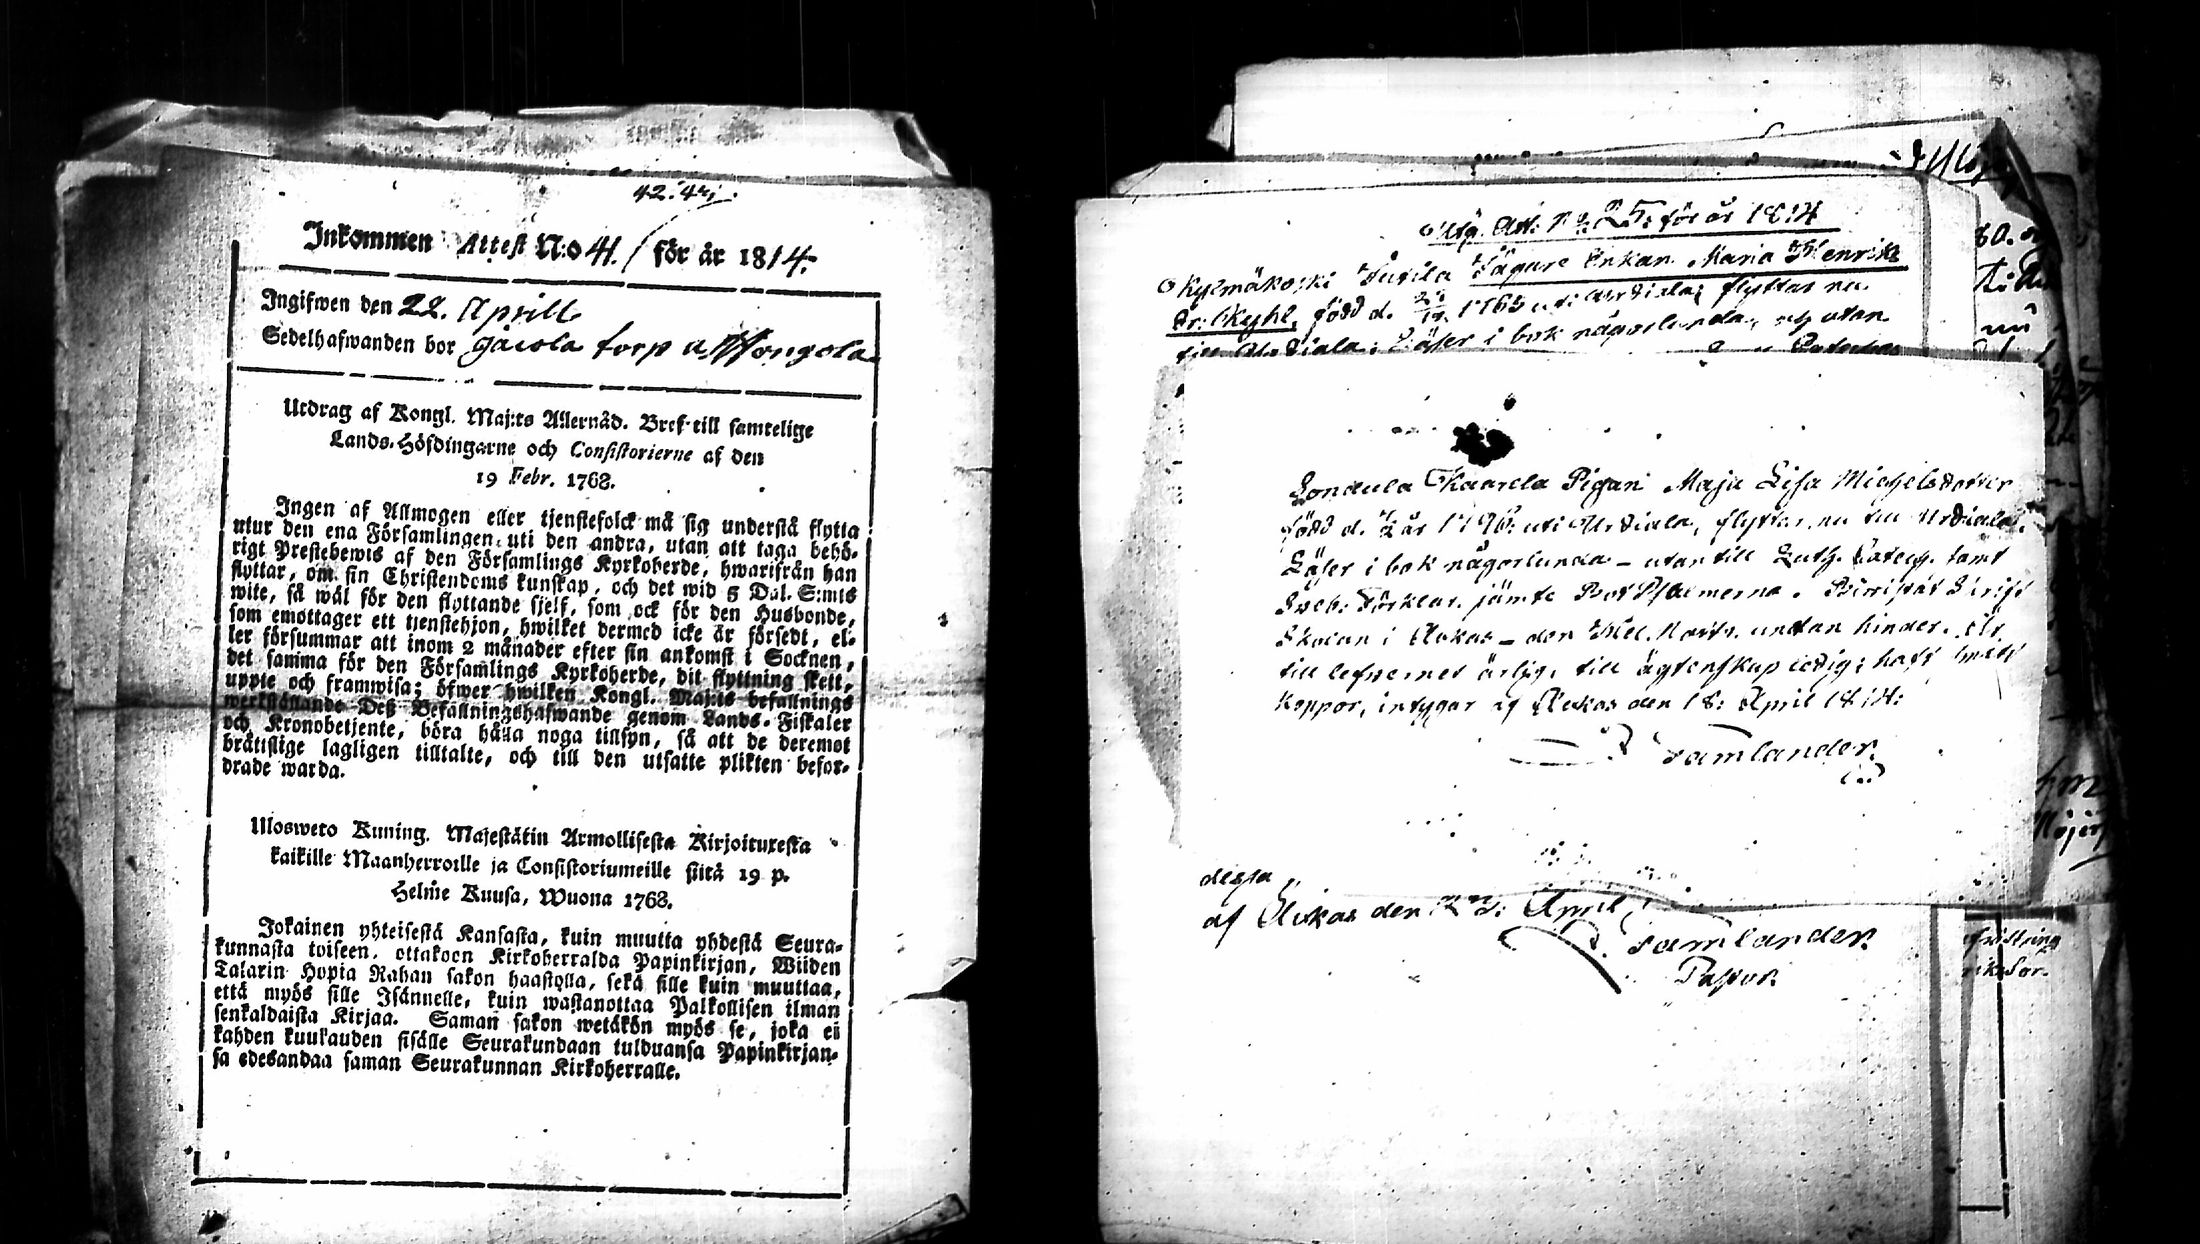 42. 43.
Inkommen Attest N:o 41. för år 1814.
Ingifwen den 22. Aprill
Sedelhafwanden bor torp
Utdrag af Kongl. Maj:ts Allernåd. Bref till samtelige
Lands-Höfdingarne och Consistorierne af den
19 Febr. 1768.
Ingen af Allmogen eller tjenstefolck må sig understå flytta
utur den ena Församlingen uti den andra, utan att taga behö-
rigt Prestebewis af den Församlings Kyrkoherde, hwarifrån han
flyttar, om sin Christendoms kunskap, och det wid 5 Dal. S:mts
wite, så wäl för den flyttande sjelf, som ock för den Husbonde,
som emottager ett tjenstehjon, hwilket dermed icke är försedt, el-
ler försummar att inom 2 månader efter sin ankomst i Socknen,
det samma för den Församlings Kyrkoherde, dit flyttning skett,
uppte och framwisa; öfwer hwilken Kongl. Maj:ts befallnings
werkställande Deß Befallningshafwande genom Lands-Fiskaler
och Kronobetjente, böra hålla noga tillsyn, så att de deremot
bråtislige lagligen tilltalte, och till den utsatte plikten befor-
drade warda.
Ulosweto Kuning. Majestätin Armollisesta Kirjoituxesta
kaikille Maanherroille ja Consistoriumeille siitä 19 p.
Helmé Kuusa, Wuona 1768.
Jokainen yhteisestä Kansasta, kuin muutta yhdestä Seura-
kunnasta toiseen, ottakoon Kirkoherralda Papinkirjan, Wiiden
Talarin Hopia Rahan sakon haastolla, sekä sille kuin muuttaa,
että myös sille Isännelle, kuin wastanottaa Palkollisen ilman
senkaldaista Kirjaa. Saman sakon wetäkön myös se, joka ei
kahden kuukauden sisälle Seurakundaan tulduansa Papinkirjan-
sa edesandaa saman Seurakunnan Kirkoherralle.
Utg. Att. N:o 25. för år 1814
Kylmäkoski Tutila Enkan Maria Henriks
dr: Skyhl, född d. 1765 uti Urdiala; flyttar nu
till Urdiala; Läser i bok någorlunda, och utan
Sondula Kaarela Pigan Maja Lisa Michelsdotter
född d. år 1796 uti Urdiala, flyttar nu till Urdiala.
Läser i bok någorlunda - utan till Luth. Catech. samt
Sveb. Förklar. jämte BotPsalmerna. Skrift
Skolan i Ackas - den utan hinder. Är
till lefvernet ärlig, till ägtenskap ledig; haft
Koppor, intygar af Ackas den 18: April 1814:
Tamlander
dessa
af Ackas den April
Tamlander.
Pastor.